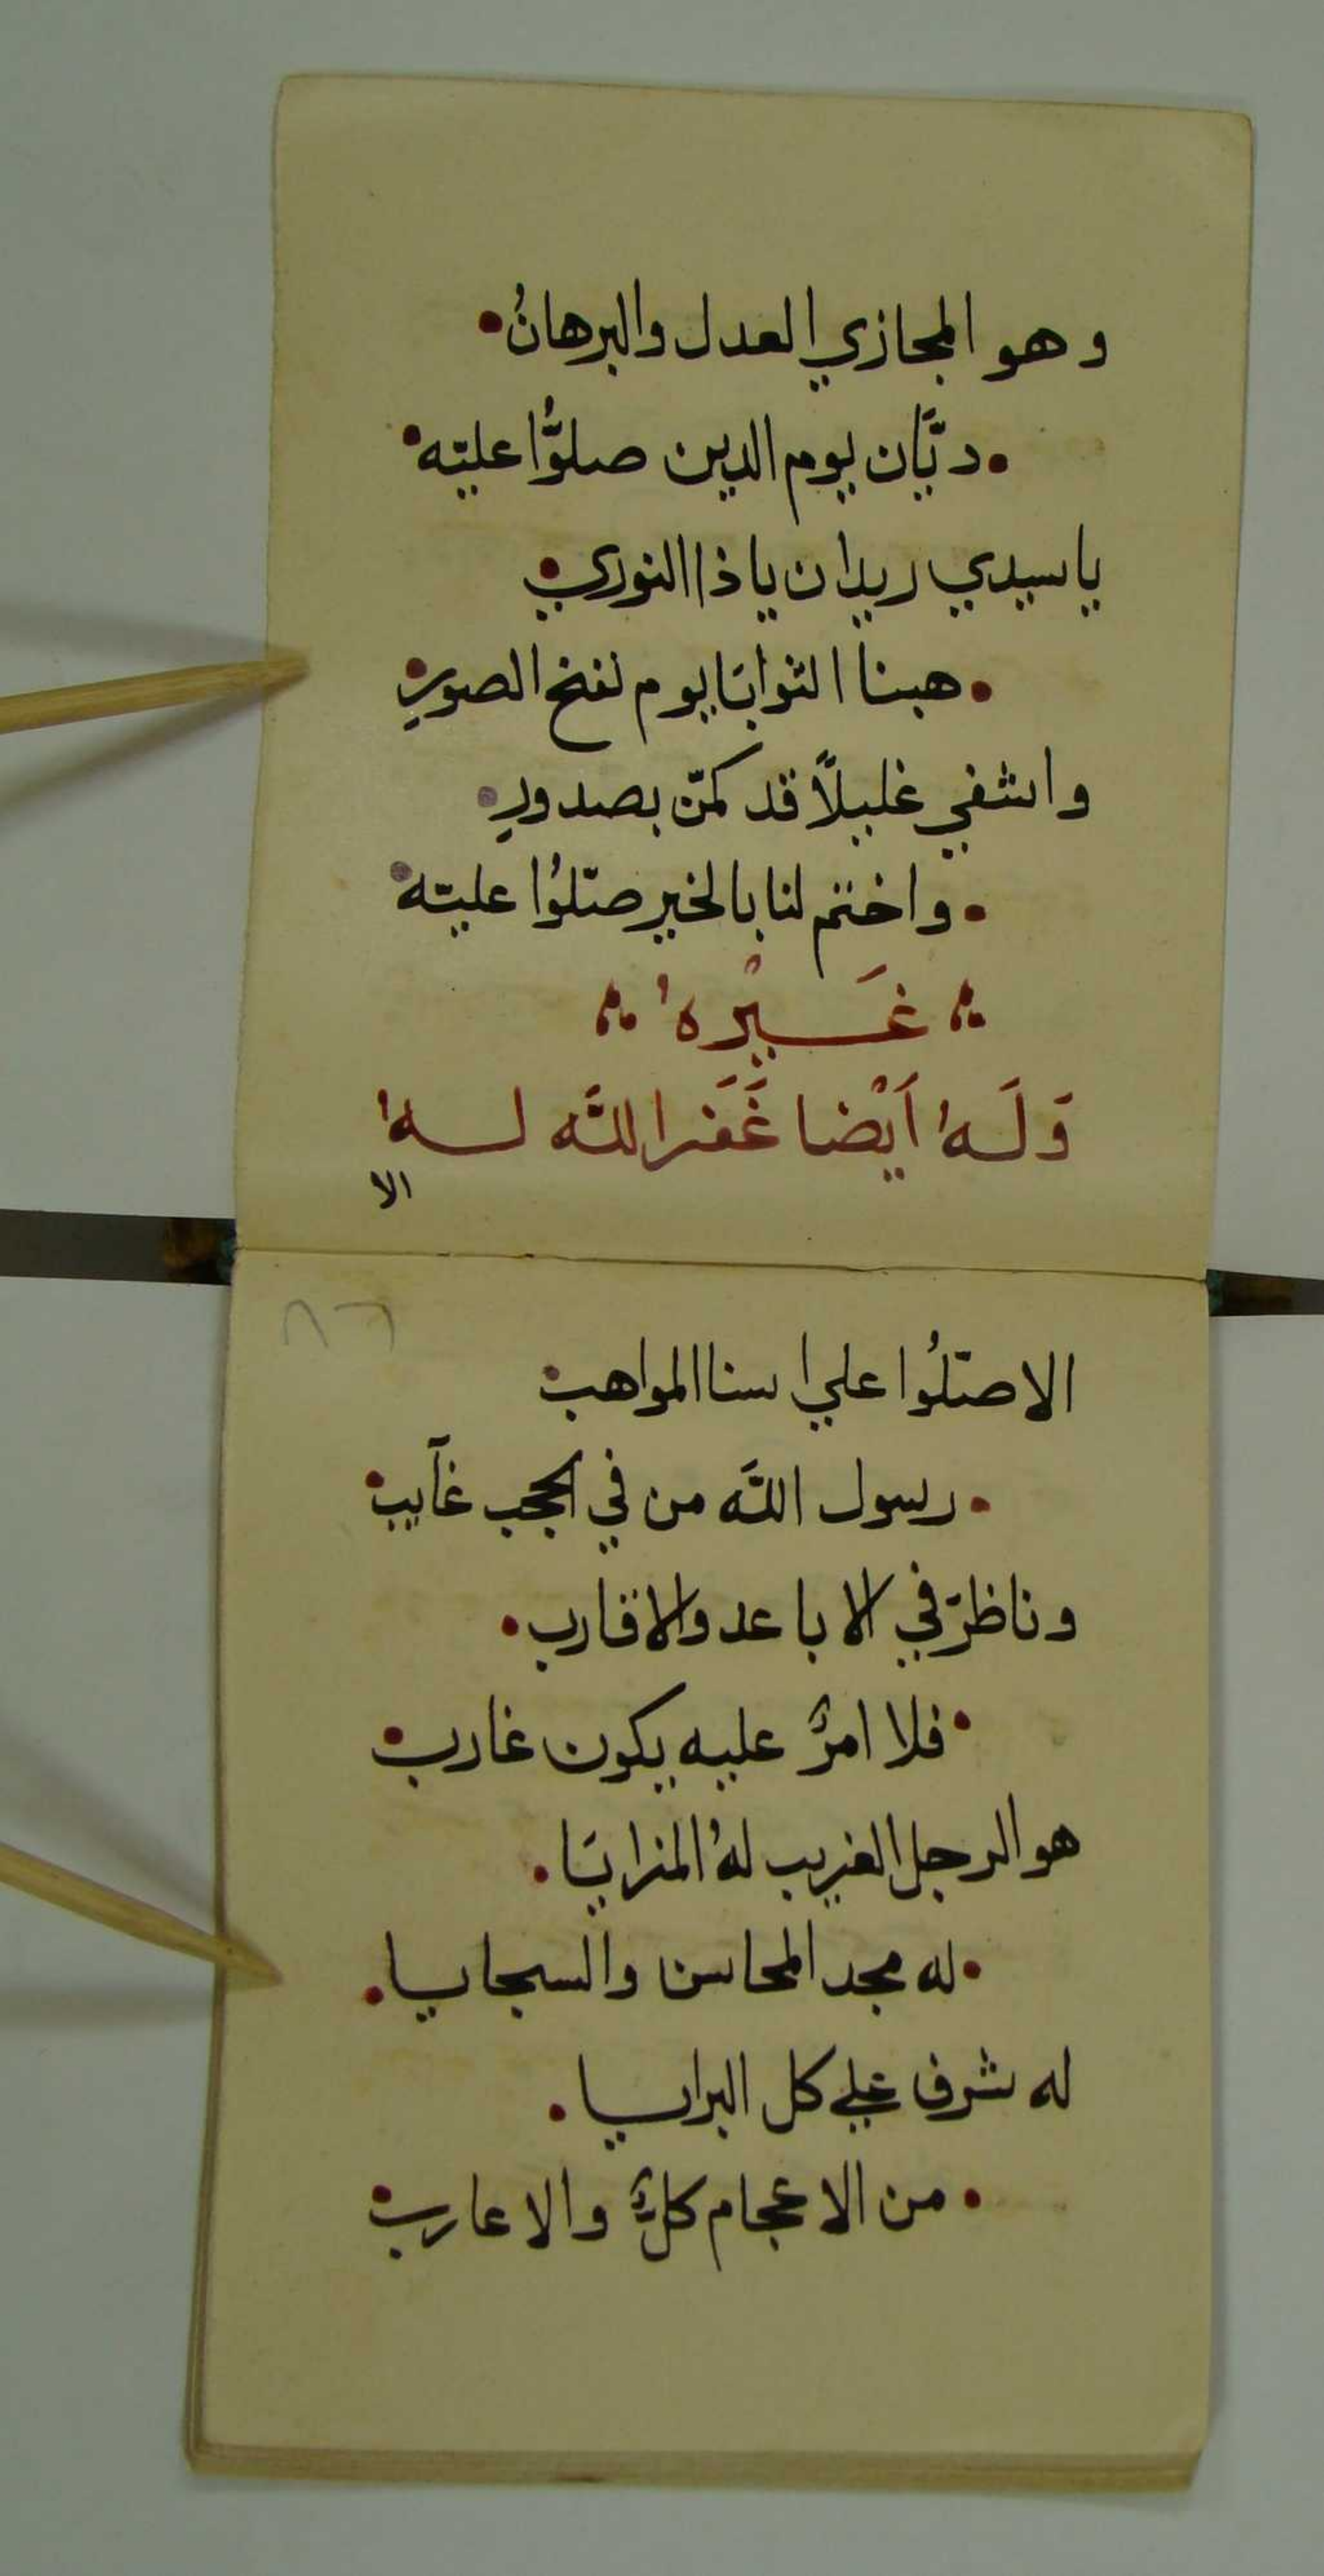 وهو المجازي العدل والبرهانُ •
• ديَّان يوم الدين صلوُّا عليّه •
ياسيدي ريدان ياذا النوري •
• هبنا الثوابَا يوم نفخ الصورِ •
واشفي غليلاً قد كمّن بصدورِ •
• واختم لنا بالخير صّلوُا عليّه •
غَيْره'
وَلَه' اَيْضا غَفَر اللَّه له'
الا
٨٦
الا صّلُوا علي اسنا المواهب •
• رسول اللَّه من في الحجب غآيب •
وناظرَ في الاباعد والاقارب •
• فلا امرٌ عليه يكون غارب •
هو الرجل الغريب لهُ المزايَا •
• له مجد المحاسن والسجايا •
له شرف علي كل البرايا •
• من الاعجام كلٌ والاعارب •